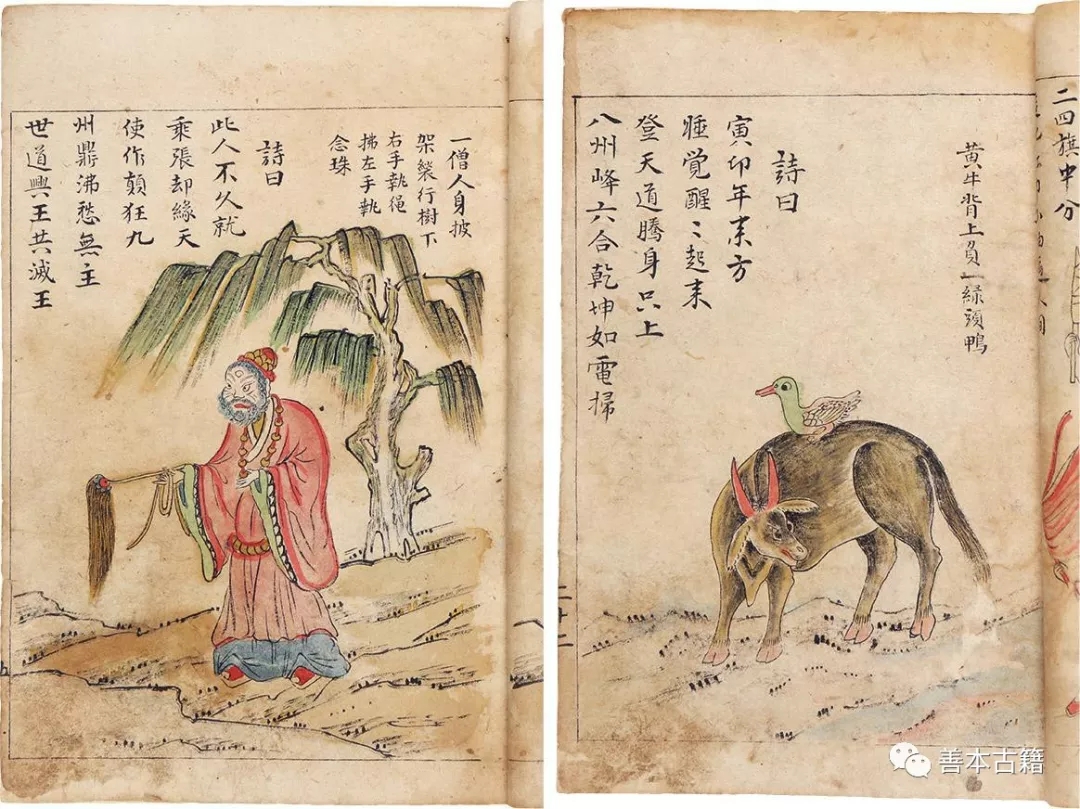 一僧人身披
架裟行樹下
右手執繩
揣左手執
念珠
詩曰
此人不久就
乘張却緣天
使作顛狂九
州鼎沸愁無主
世道興王共滅王
二四旗中分
黄牛背上負一緑頭鴨
詩曰
寅卯年来方
睡覚醒〻起来
登天道騰身只上
八州峰六合乾坤如電掃
善本古籍